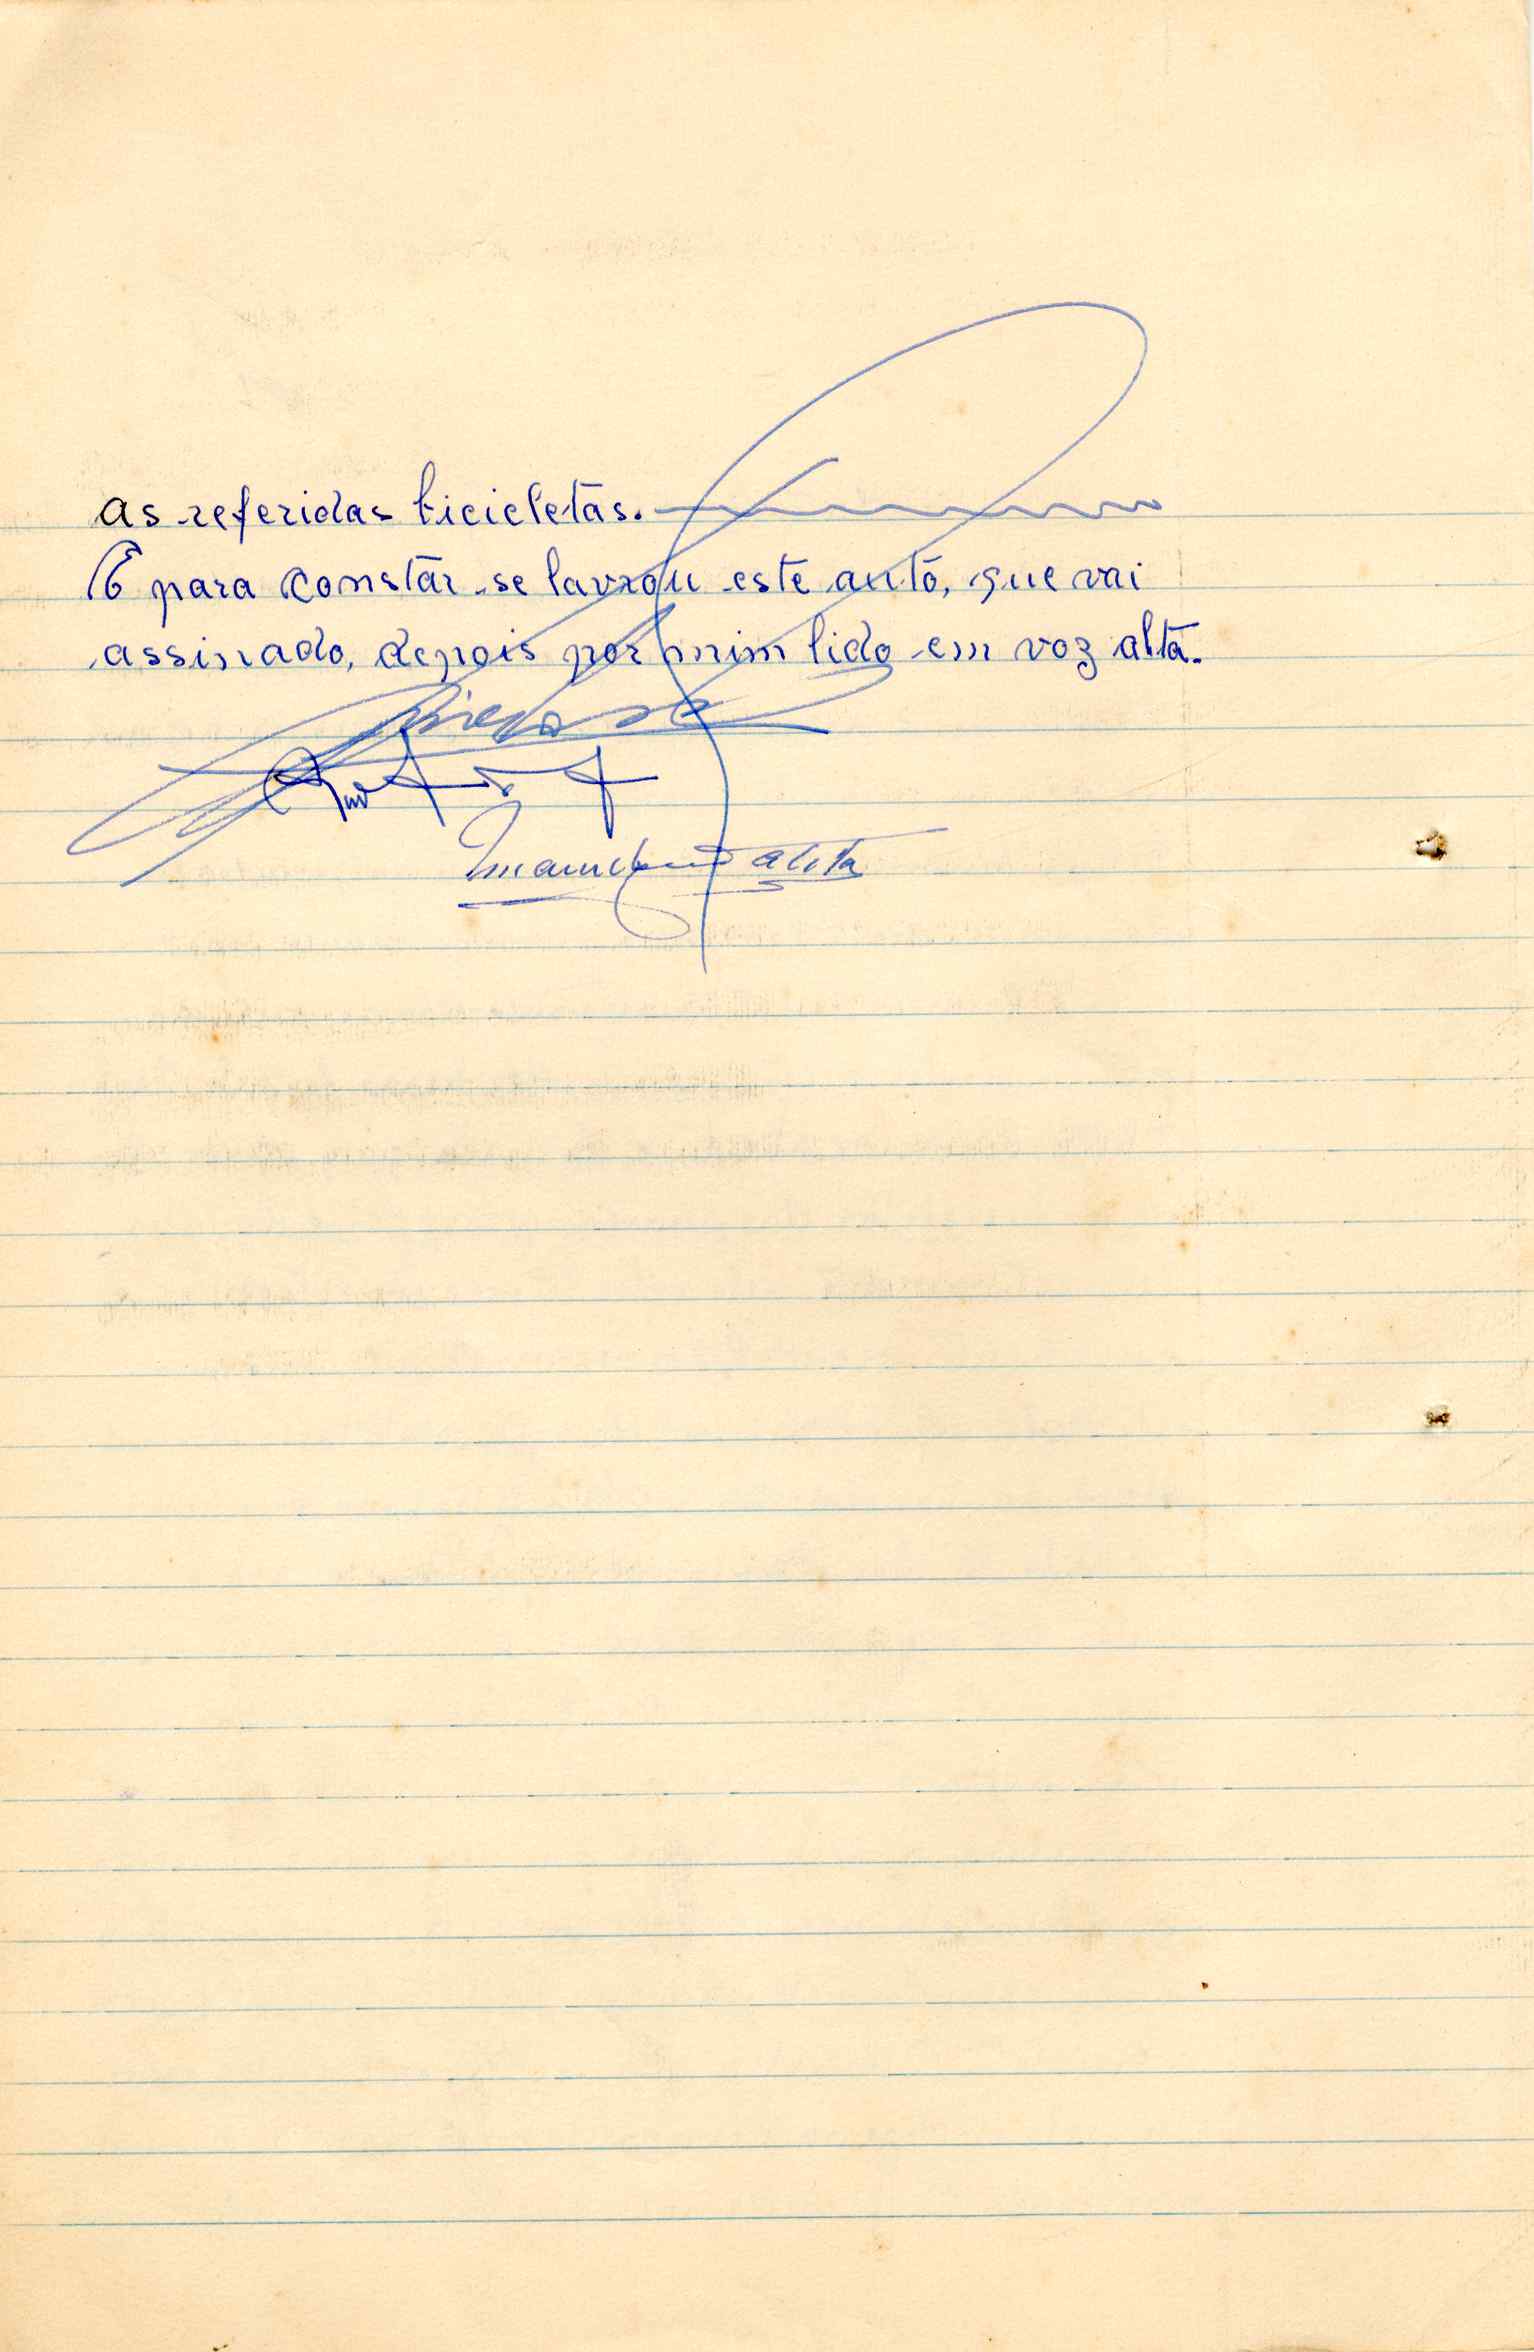 as referidas bicicletas.
E para constar se lavrou este auto, que vai
assinado, depois por mim lido em voz alta.